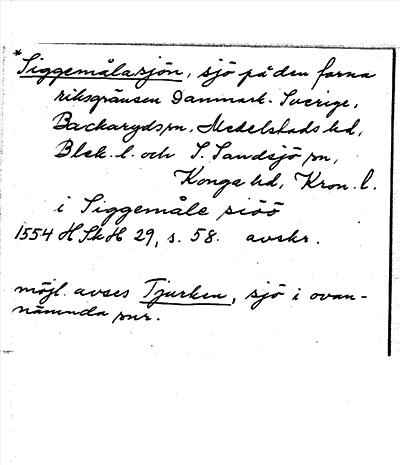 *Siggemålasjön, sjö på den forna
riksgränsen Danmark-Sverige,
Backaryds sn, Medelstads hd,
Blek. l. och S. Sandsjö sn,
Konga hd, Kron. l.
i Siggemåle siöö
1554 HSkH 29, s. 58. avskr.
möjl. avses Tjurken, sjö i ovan-
nämnda snr.